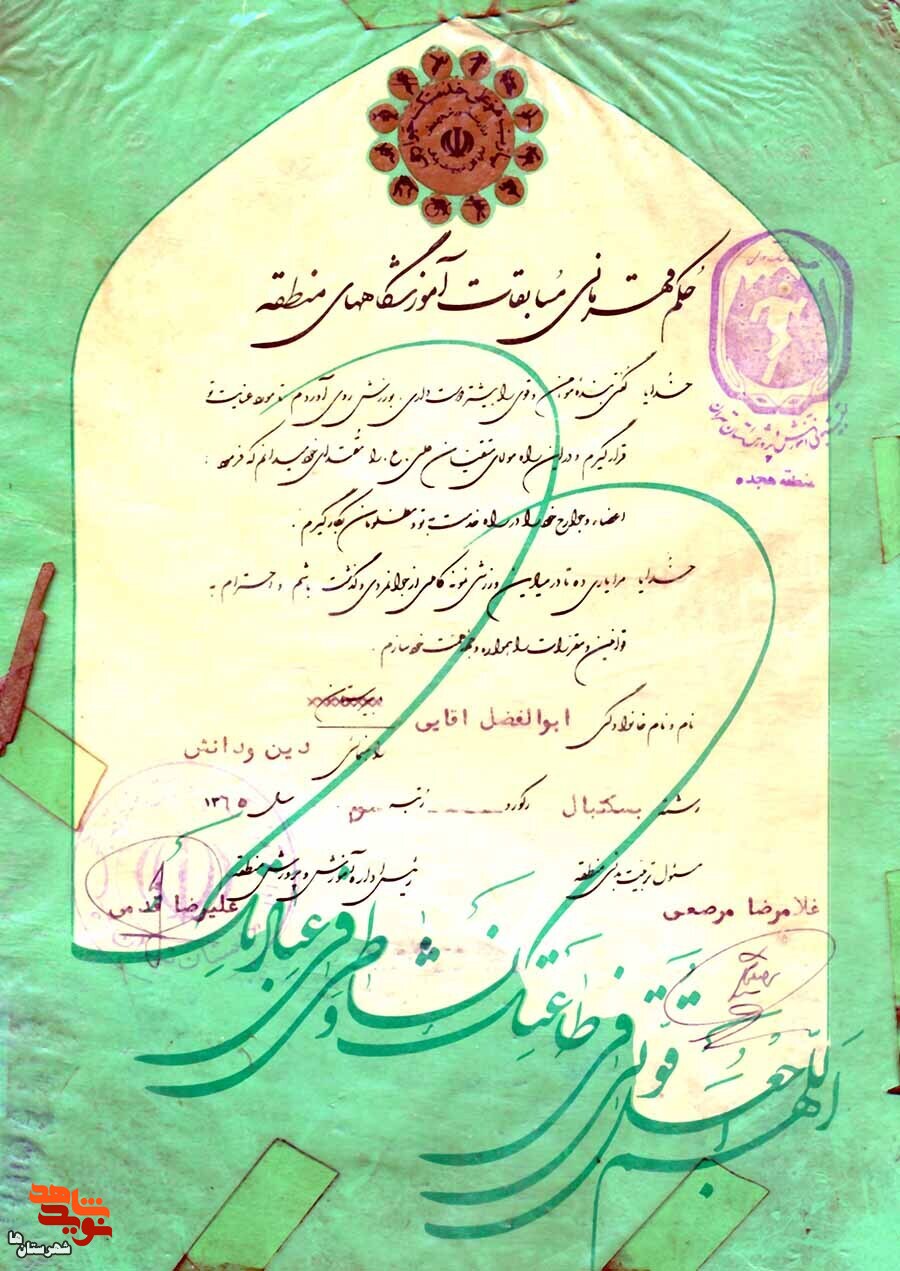 حکم قهرمانی مسابقات آموزشگاههای منطقه
خدایا گفتی بنده مؤمن و قوی را بیشتر دوست داری. بورزش روی آوردم تا مورد عنایت تو
قرار گیرم و در این راه مولای متقیان علی «ع» را مقتدای خود میدانم که فرمود:
اعضاء و جوارح خود را در راه خدمت به تو و مظلومان بکار گیرم.
خدایا مرا یاری ده تا در میادین ورزشی نمونه کاملی از جوانمردی و گذشت باشم و احترام به
قوانین و مقررات را همواره وجهه همت خود سازم.
منطقه هجده
نام و نام خانوادگی ابوالفضل اقایی دبیرستان
راهنمائی دین ودانش
رشته بسکتبال رکورد ـــــ رتبه سوم سال ۱۳۶۵
مسئول تربیت بدنی منطقه رئیس اداره آموزش و پرورش منطقه
غلامرضا مرصعی علیرضا قدمی
اللهم اجعل قوتی فی طاعتک و نشاطی فی عبادتک
نوید شاهد
شهرستان ها